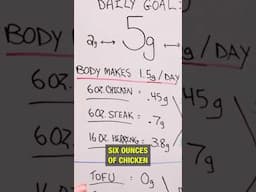 DAILY GOAL:
2g ↔ 5g ↔
BODY MAKES 1.5g/DAY
6 oz. CHICKEN = .45g
6 oz. STEAK = .7g
16 oz HERRING = 3.8g
SIX OUNCES
OF CHICKEN
TOFU = 0g